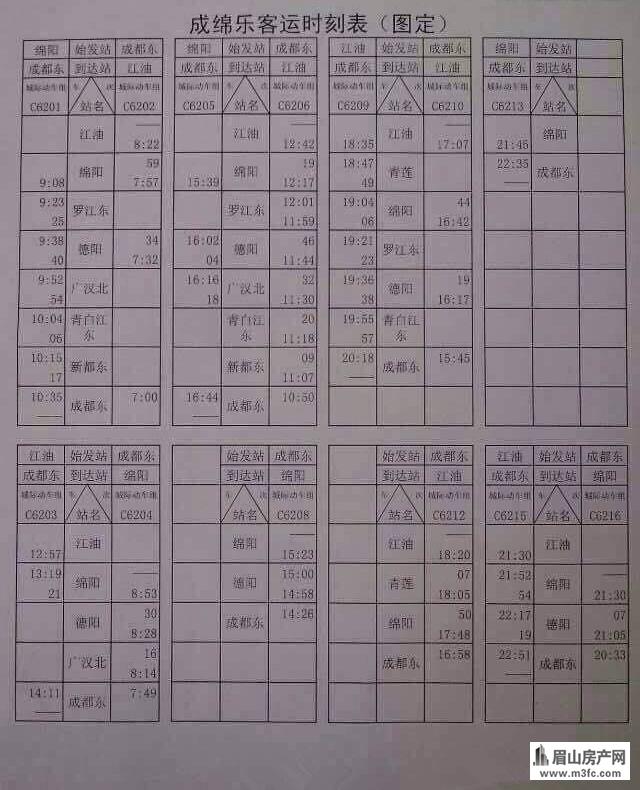 成绵乐客运时刻表（图定）
绵阳 始发站 成都东
成都东 到达站 江油
城际动车组 车 次 城际动车组
C6201 站名 C6202
江油 —— 8:22
9:08 绵阳 59 7:57
9:23 25 罗江东
9:38 40 德阳 34 7:32
9:52 54 广汉北
10:04 06 青白江东
10:15 17 新都东
10:35 —— 成都东 7:00
绵阳 始发站 成都东
成都东 到达站 江油
城际动车组 车 次 城际动车组
C6205 站名 C6206
江油 —— 12:42
15:39 绵阳 19 12:17
罗江东 12:01 11:59
16:02 04 德阳 46 11:44
16:16 18 广汉北 32 11:30
青白江东 20 11:18
新都东 09 11:07
16:44 —— 成都东 10:50
江油 始发站 成都东
成都东 到达站 江油
城际动车组 车 次 城际动车组
C6209 站名 C6210
18:35 江油 —— 17:07
18:47 49 青莲
19:04 06 绵阳 44 16:42
19:21 23 罗江东
19:36 38 德阳 19 16:17
19:55 57 青白江东
20:18 —— 成都东 15:45
绵阳 始发站
成都东 到达站
城际动车组 车 次
C6213 站名
21:45 绵阳
22:35 —— 成都东
江油 始发站 成都东
成都东 到达站 绵阳
城际动车组 车 次 城际动车组
C6203 站名 C6204
12:57 江油
13:19 21 绵阳 —— 8:53
德阳 30 8:28
广汉北 16 8:14
14:11 —— 成都东 7:49
始发站 成都东
到达站 绵阳
车 次 城际动车组
站名 C6208
绵阳 —— 15:23
德阳 15:00 14:58
成都东 14:26
始发站 成都东
到达站 江油
车 次 城际动车组
站名 C6212
江油 —— 18:20
青莲 07 18:05
绵阳 50 17:48
成都东 16:58
江油 始发站 成都东
成都东 到达站 绵阳
城际动车组 车 次 城际动车组
C6215 站名 C6216
21:30 江油
21:52 54 绵阳 —— 21:30
22:17 19 德阳 07 21:05
22:51 —— 成都东 20:33
眉山房产网
www.m3fc.com